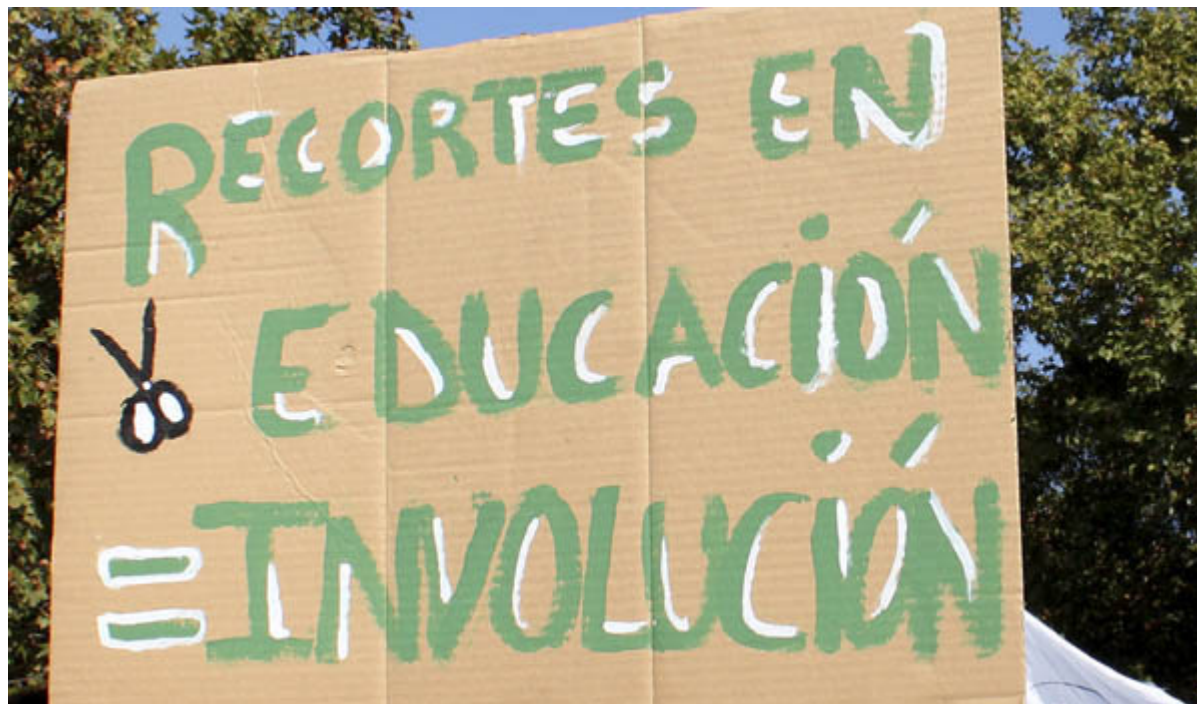 RECORTES EN
EDUCACIÓN
=INVOLUCIÓN